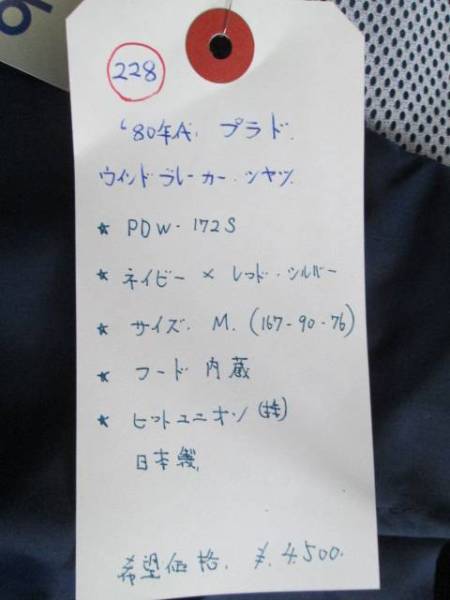 228
'80年代. プラド.
ウインドブレーカー.シャツ.
★ PDW-172S
★ ネイビー × レッド・シルバー
★ サイズ. M. (167-90-76)
★ フード 内蔵
★ ヒットユニオン (株)
日本製.
希望価格. ¥.4.500.